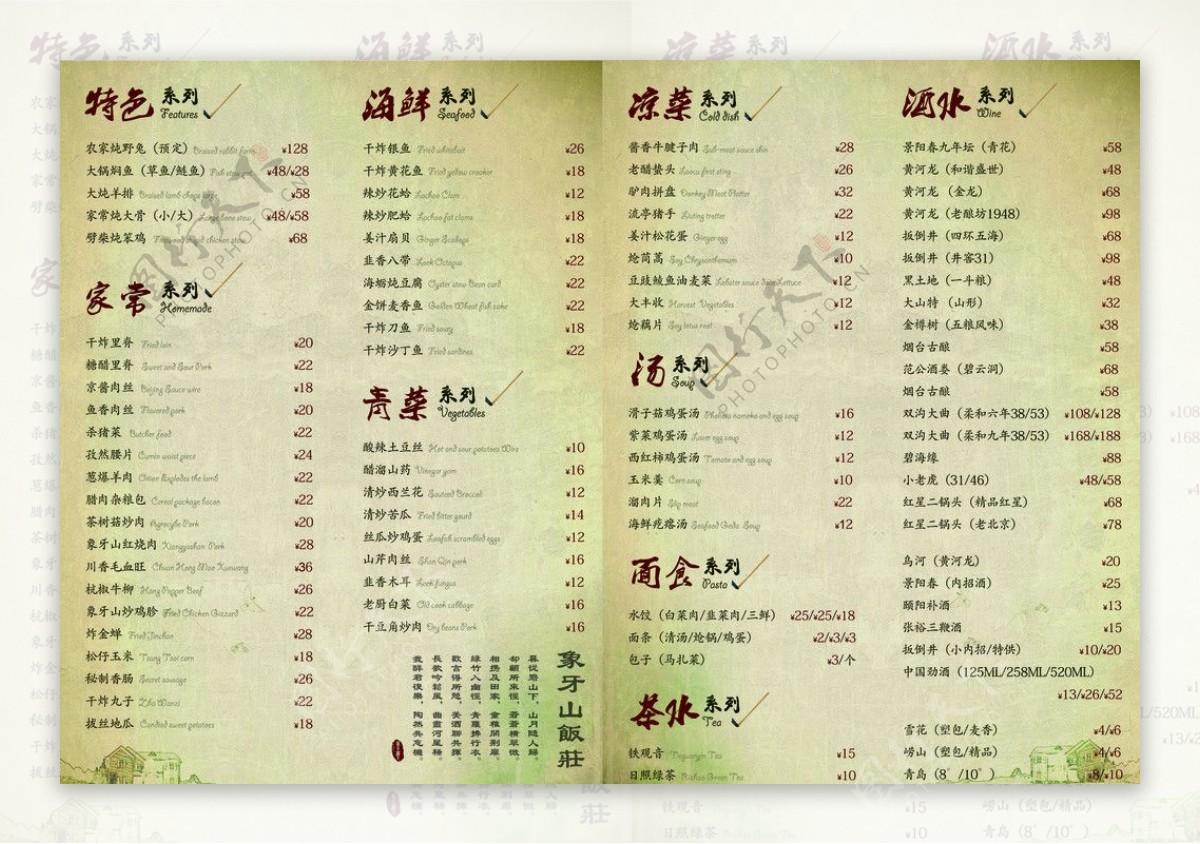 特色 系列
Features
农家炖野兔（预定） Braised rabbit farm ¥128
大锅焖鱼（草鱼/鲢鱼） Fish stew pot ¥48/¥28
大炖羊排 Braised lamb chops large ¥58
家常炖大骨（小/大） Large bone stew ¥48/¥58
劈柴炖笨鸡 ¥68
家常 系列
Homemade
干炸里脊 Fried loin ¥20
糖醋里脊 Sweet and Sour Pork ¥22
京酱肉丝 Beijing Sauce wire ¥18
鱼香肉丝 Flavored pork ¥20
杀猪菜 Butcher food ¥22
孜然腰片 Cumin waist piece ¥24
葱爆羊肉 Onion Explodes the lamb ¥22
腊肉杂粮包 Cereal package bacon ¥22
茶树菇炒肉 Agrocybe Pork ¥20
象牙山红烧肉 Xiangyashan Pork ¥28
川香毛血旺 Chuan Hong Mao Xuewang ¥36
杭椒牛柳 Hang Pepper Beef ¥26
象牙山炒鸡胗 Fried Chicken Gizzard ¥22
炸金蝉 Fried Jinchan ¥28
松仔玉米 Tsang Tsai corn ¥18
秘制香肠 Secret sausage ¥26
干炸丸子 Zha Wanzi ¥22
拔丝地瓜 Candied sweet potatoes ¥18
海鲜 系列
Seafood
干炸银鱼 Fried whitebait ¥26
干炸黄花鱼 Fried yellow croaker ¥18
辣炒花蛤 Lachao Clam ¥12
辣炒肥蛤 Lachao fat clams ¥18
姜汁扇贝 Ginger Scallops ¥18
韭香八带 Leek Octopus ¥22
海蛎炖豆腐 Oyster stew Bean curd ¥22
金饼麦香鱼 Golden Wheat fish cake ¥22
干炸刀鱼 Fried saury ¥18
干炸沙丁鱼 Fried sardines ¥22
青菜 系列
Vegetables
酸辣土豆丝 Hot and sour potatoes Wire ¥10
醋溜山药 Vinegar yam ¥16
清炒西兰花 Sauteed Broccoli ¥12
清炒苦瓜 Fried bitter gourd ¥14
丝瓜炒鸡蛋 Loofah scrambled eggs ¥12
山芹肉丝 Shan Qin pork ¥16
韭香木耳 Leek fungus ¥12
老厨白菜 Old cook cabbage ¥16
干豆角炒肉 Dry beans Pork ¥16
象牙山飯莊
暮從碧山下，山月隨人歸。
卻顧所來徑，蒼蒼橫翠微。
相攜及田家，童稚開荊扉。
綠竹入幽徑，青蘿拂行衣。
歡言得所憩，美酒聊共揮。
長歌吟松風，曲盡河星稀。
我醉君復樂，陶然共忘機。
凉菜 系列
Cold dish
酱香牛腱子肉 Sub-meat sauce shin ¥28
老醋蛰头 Laocu first sting ¥26
驴肉拼盘 Donkey Meat Platter ¥32
流亭猪手 Liuting trotter ¥22
姜汁松花蛋 Ginger egg ¥12
炝茼蒿 Soy Chrysanthemum ¥10
豆豉鲮鱼油麦菜 Lobster sauce dace Lettuce ¥12
大丰收 Harvest Vegetables ¥12
炝藕片 Soy lotus root ¥12
汤 系列
Soup
滑子菇鸡蛋汤 Pholiota nameko and egg soup ¥16
紫菜鸡蛋汤 Laver egg soup ¥12
西红柿鸡蛋汤 Tomato and egg soup ¥12
玉米羹 Corn soup ¥10
溜肉片 Slip meat ¥22
海鲜疙瘩汤 Seafood Geda Soup ¥12
面食 系列
Pasta
水饺（白菜肉/韭菜肉/三鲜） ¥25/¥25/¥18
面条（清汤/炝锅/鸡蛋） ¥2/¥3/¥3
包子（马扎菜） ¥3/个
茶水 系列
Tea
铁观音 Tieguanyin Tea ¥15
日照绿茶 Rizhao Green Tea ¥10
酒水 系列
Wine
景阳春九年坛（青花） ¥58
黄河龙（和谐盛世） ¥48
黄河龙 （金龙） ¥68
黄河龙（老酿坊1948） ¥98
扳倒井（四环五海） ¥68
扳倒井（井窖31） ¥98
黑土地（一斗粮） ¥48
大山特（山形） ¥32
金樽树（五粮风味） ¥38
烟台古酿 ¥58
范公酒娄（碧云洞） ¥68
烟台古酿 ¥58
双沟大曲（柔和六年38/53） ¥108/¥128
双沟大曲（柔和九年38/53） ¥168/¥188
碧海缘 ¥88
小老虎（31/46） ¥48/¥58
红星二锅头（精品红星） ¥68
红星二锅头（老北京） ¥78
乌河（黄河龙） ¥20
景阳春（内招酒） ¥25
颐阳补酒 ¥13
张裕三鞭酒 ¥15
扳倒井（小内招/特供） ¥10/¥20
中国劲酒（125ML/258ML/520ML）
¥13/¥26/¥52
雪花（塑包/麦香） ¥4/¥6
崂山（塑包/精品） ¥4/¥6
青岛（8°/10°） ¥8/¥10
图行天下
PHOTOPHOTO.CN